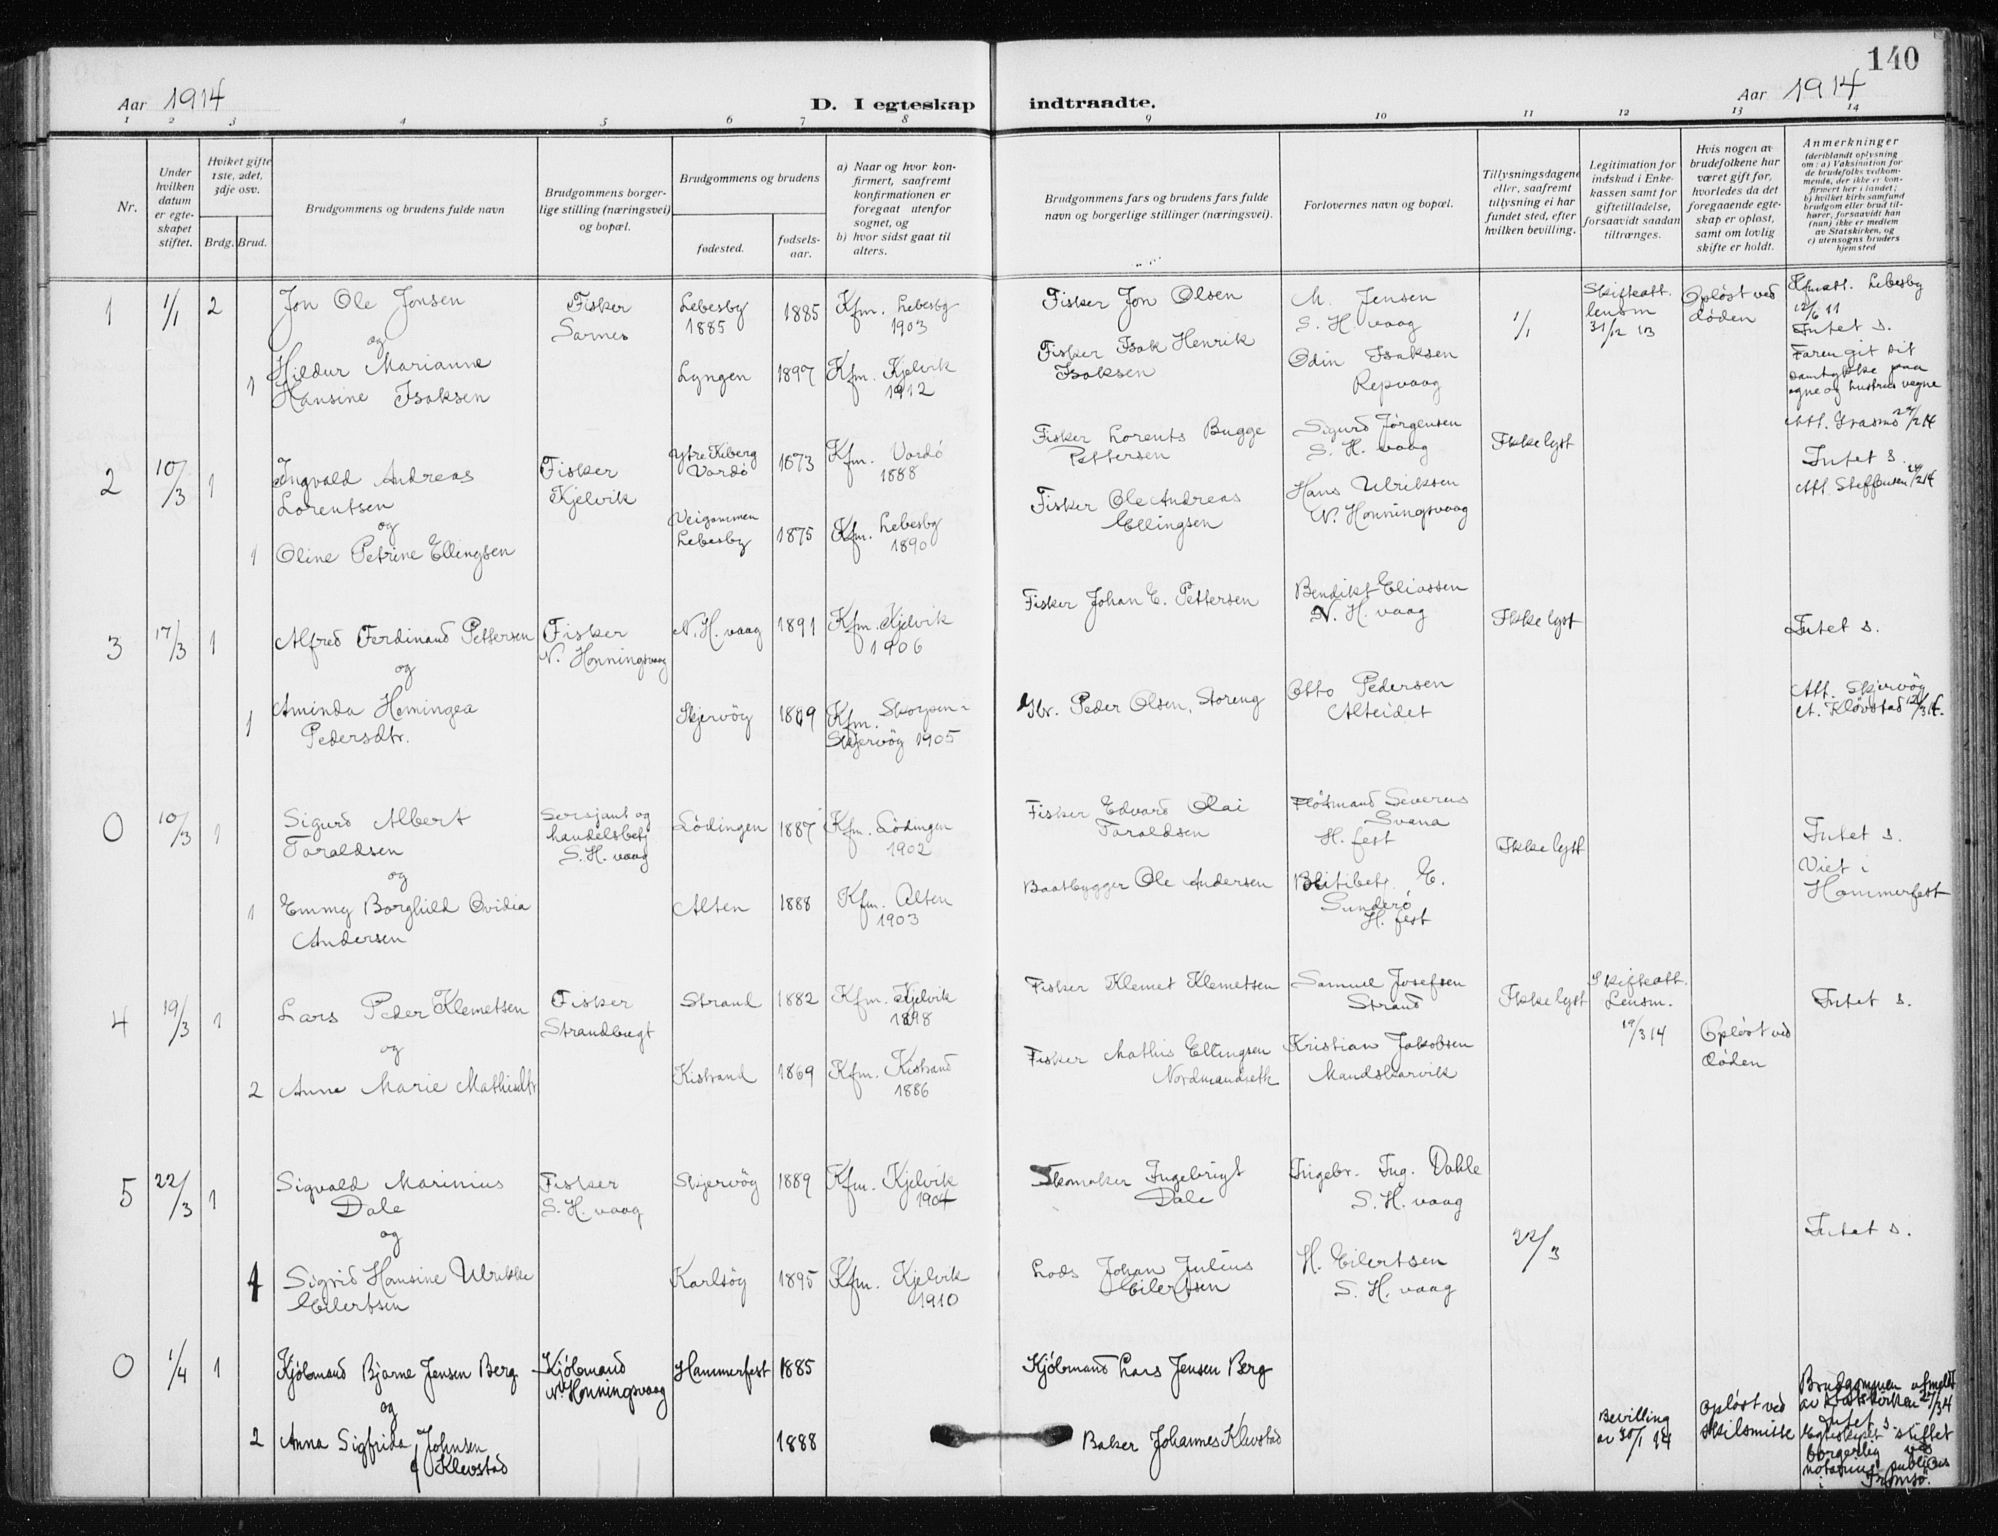 140
Aar 1914
D. I egteskap indtraadte.
Aar 1914
1 2 3 4 5 6 7 8 9 10 11 12 13 14
Nr.
Under hvilken datum er egteskapet stiftet.
Hviket gifte 1ste, 2det, 3dje osv.
Brdg. Brud.
Brudgommens og brudens fulde navn
Brudgommens borgerlige stilling (næringsvei) og bopæl.
Brudgommens og brudens
fødested.
fødselsaar.
a) Naar og hvor konfirmert, saafremt konfirmationen er foregaat utenfor sognet, og
b) hvor sidst gaat til alters.
Brudgommens fars og brudens fars fulde navn og borgerlige stillinger (næringsvei).
Forlovernes navn og bopæl.
Tillysningsdagene eller, saafremt tillysning ei har fundet sted, efter hvilken bevilling.
Legitimation for indskud i Enkekassen samt for giftetilladelse, forsaavidt saadan tiltrænges.
Hvis nogen av brudefolkene har været gift før, hvorledes da det foregaaende egteskap er opløst, samt om lovlig skifte er holdt.
Anmerkninger
(deriblandt oplysning om: a) Vaksination for de brudefolks vedkommende, der ikke er konfirmert her i landet; b) hvilket kirkesamfund brudgom eller brud tilhører, forsaavidt han (hun) ikke er medlem av Statskirken, og c) utensogns bruders hjemsted
1 1/1 2 Jon Ole Jonsen
og
1 Hildur Marianne
Hansine Isaksen
Fisker
Sarnes
Lebesby
1885
1885
Kfm. Lebesby
1903
Lyngen 1897 Kfm. Kjelvik
1912
Fisker Jon Olsen
Fisker Isak Henrik
Isaksen
M. Jensen
S. H. vaag
Odin Isaksen
Repvaag
1/1
Skifteatt.
lensm
31/12 13
Opløst ved
døden
Lebesby
12/6 11
Intet s.
Faren git sit
samtykke paa
egne og hustrus vegne
2 10/3 1 Ingvald Andreas
Lorentsen
og
1 Oline Petrine Ellingsen
Fisker
Kjelvik
Ytre Kiberg
Vardø
1873
Kfm. Vardö
1888
Veigammen
Lebesby
1875
Kfm. Lebesby
1890
Fisker Lorents Bugge
Pettersen
Fisker Ole Andreas
Ellingsen
Sigurd Jørgensen
S. H. vaag
Hans Ulriksen
N. Honningsvaag
Ikke lyst
Intet s.
Att. Steffensen
3 17/3 1 Alfred Ferdinand Pettersen
og
1 Aminda Hemingea
Pedersdtr.
Fisker
N. Honningsvaag
N. H. vaag 1891 Kfm. Kjelvik
1906
Skjervöy 1889 Kfm.
Skjervög 1905
Fisker Johan E. Pettersen
Peder Olsen, Storeng
Bendikt Eliassen
N. H. vaag
Otto Pedersen
Alteidet
Ikke lyst
Intet s.
Att. Skjervöy
0 10/3 1 Sigurd Albert
Taraldsen
og
1 Emmy Borghild Ovidia
Andersen
Sersjant og
handelsbetj
S. H. vaag
Lödingen 1887 Kfm. Lödingen
1902
Alten 1888 Kfm. Alten
1903
Fisker Edvard Olai
Taraldsen
Baatbygger Ole Andersen
Severus
Svana
H. fest
E.
Sunderö
H. fest
Ikke lyst
Intet s.
Viet i
Hammerfest
4 19/3 1 Lars Peder Klemetsen
og
2 Anne Marie Mathisdtr
Fisker
Strandbugt
Strand 1882 Kfm. Kjelvik
1898
Kistrand 1869 Kfm. Kistrand
1886
Fisker Klemet Klemetsen
Fisker Mathis Ellingsen
Nordmandseth
Samuel Josefsen
Strand
Kristian Jakobsen
Mandskarvik
Ikke lyst
Skifteatt.
Lensm.
19/3 14
Opløst ved
døden
Intet s.
5 22/3 1 Sigvald Marinius
Dale
og
1 Sigrid Hansine Ulrikke
Eilertsen
Fisker
S. H. vaag
Skjervöy 1889 Kfm. Kjelvik
1904
Karlsöy 1895 Kfm. Kjelvik
1910
Skomaker Ingebrigt
Dale
Lods Johan Julius
Eilertsen
Ingebr. Ing. Dahle
S. H. vaag
H. Eilertsen
S. H. vaag
22/3
Intet s.
0 1/4 1 Kjöbmand Bjarne Jensen Berg
og
2 Anna Sigfrida Johnsen
f Klevstad
Kjöbmand
N. Honningsvaag
Hammerfest 1885
1888
Kjöbmand Lars Jensen Berg
Baker Johannes Klevstad
Bevilling
av 30/1 14
Opløst ved
skilsmisse
Brudgommen utmeldt
av Statskirken 27/3 14
Intet s.
Egteskapet stiftet
borgerlig ved
notarius publicus
Tromsö.